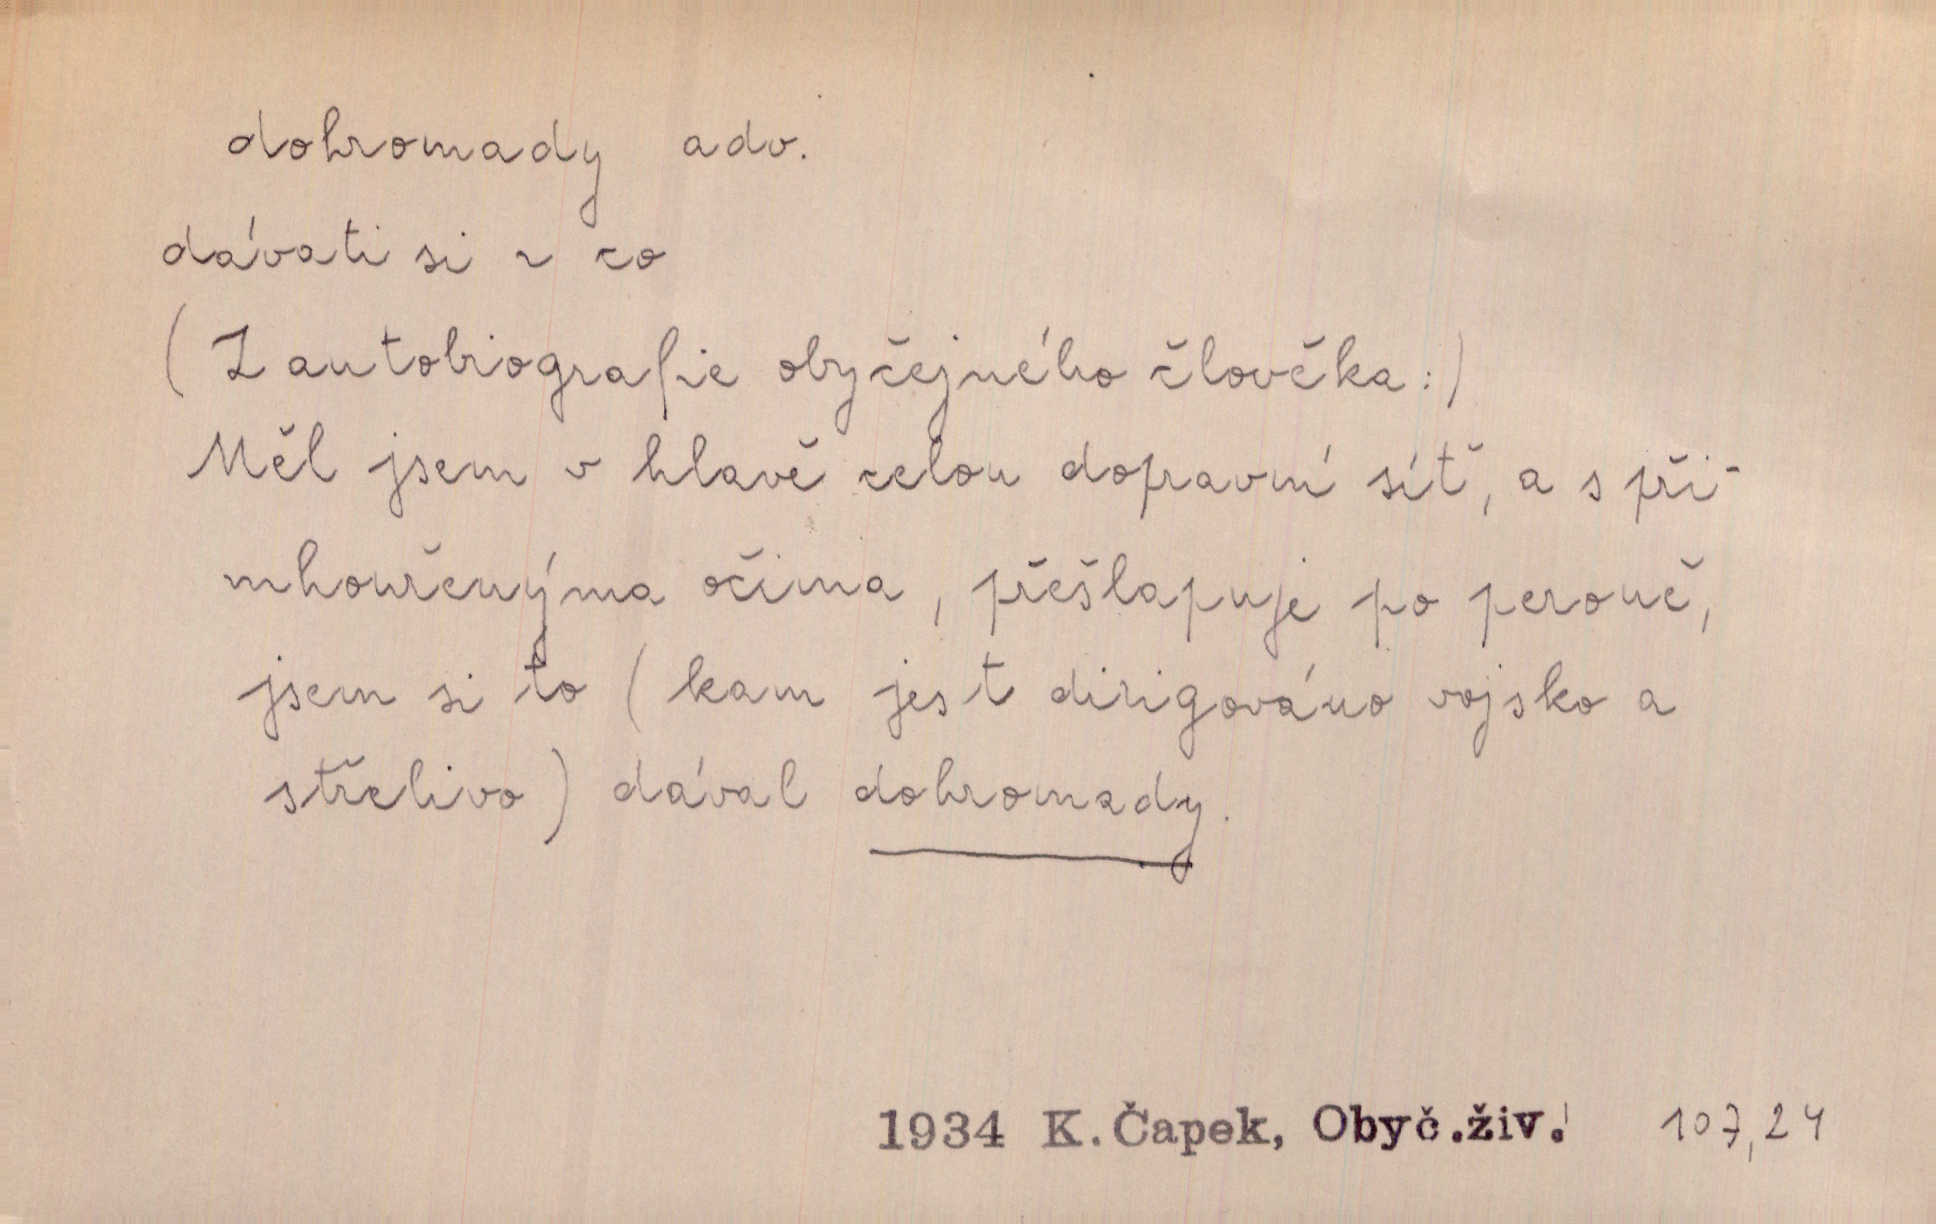 dohromady adv.
dávati si ~ co
(Z autobiografie obyčejného člověka:)
Měl jsem v hlavě celou dopravní síť, a s při-
mhouřenýma očima, přešlapuje po peroně,
jsem si to (kam jest dirigováno vojsko a
střelivo) dával dohromady.
1934 K. Čapek, Obyč.živ. 107,24